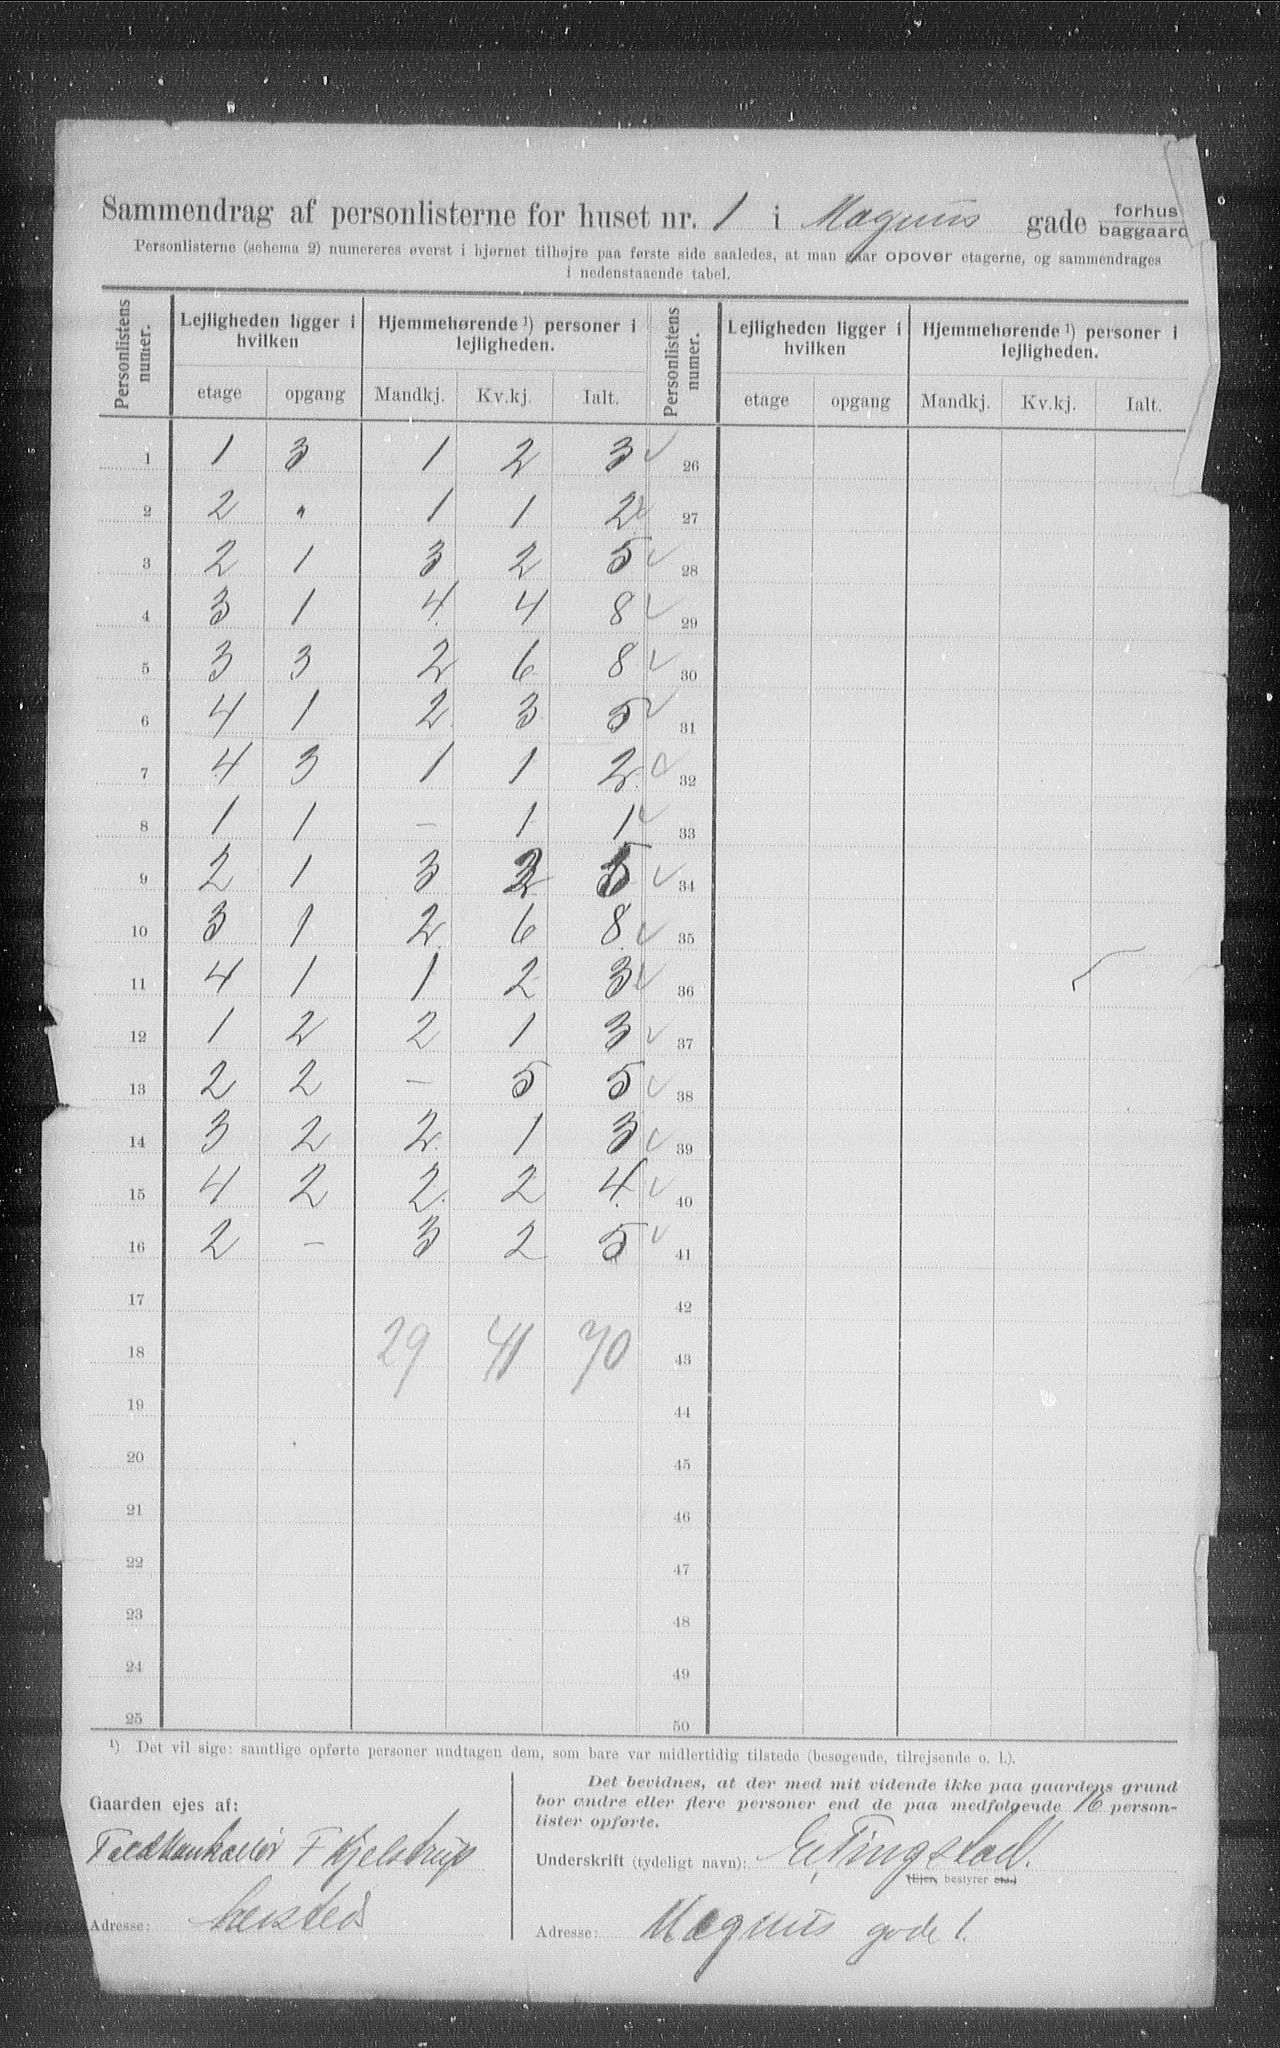 Sammendrag af personlisterne for huset nr. 1 i Magnus gade forhus baggaard
Personlisterne (schema 2) numereres øverst i hjørnet tilhøjre paa første side saaledes, at man gaar opover etagerne, og sammendrages
i nedenstaaende tabel.
Personlistens numer. Lejligheden ligger i hvilken Hjemmehørende ¹) personer i lejligheden. Personlistens numer. Lejligheden ligger i hvilken Hjemmehørende ¹) personer i lejligheden.
etage opgang Mandkj. Kv.kj. Ialt. etage opgang Mandkj. Kv.kj. Ialt.
1 1 3 1 2 3 ✓ 26
2 2 " 1 1 2 ✓ 27
3 2 1 3 2 5 ✓ 28
4 3 1 4 4 8 ✓ 29
5 3 3 2 6 8 ✓ 30
6 4 1 2 3 5 ✓ 31
7 4 3 1 1 2 ✓ 32
8 1 1 – 1 1 ✓ 33
9 2 1 3 2 5 ✓ 34
10 3 1 2 6 8 ✓ 35
11 4 1 1 2 3 ✓ 36
12 1 2 2 1 3 ✓ 37
13 2 2 – 5 5 ✓ 38
14 3 2 2 1 3 ✓ 39
15 4 2 2 2 4 ✓ 40
16 2 – 3 2 5 ✓ 41
17 42
18 29 41 70 43
19 44
20 45
21 46
22 47
23 48
24 49
25 50
¹) Det vil sige: samtlige opførte personer undtagen dem, som bare var midlertidig tilstede (besøgende, tilrejsende o. l.).
Gaarden ejes af:
F Kjelstrup
Adresse:
Det bevidnes, at der med mit vidende ikke paa gaardens grund
bor andre eller flere personer end de paa medfølgende 16 person-
lister opførte.
Underskrift (tydeligt navn): E. Tingstad.
(Ejer, bestyrer etc.)
Adresse: Magnus gade 1.